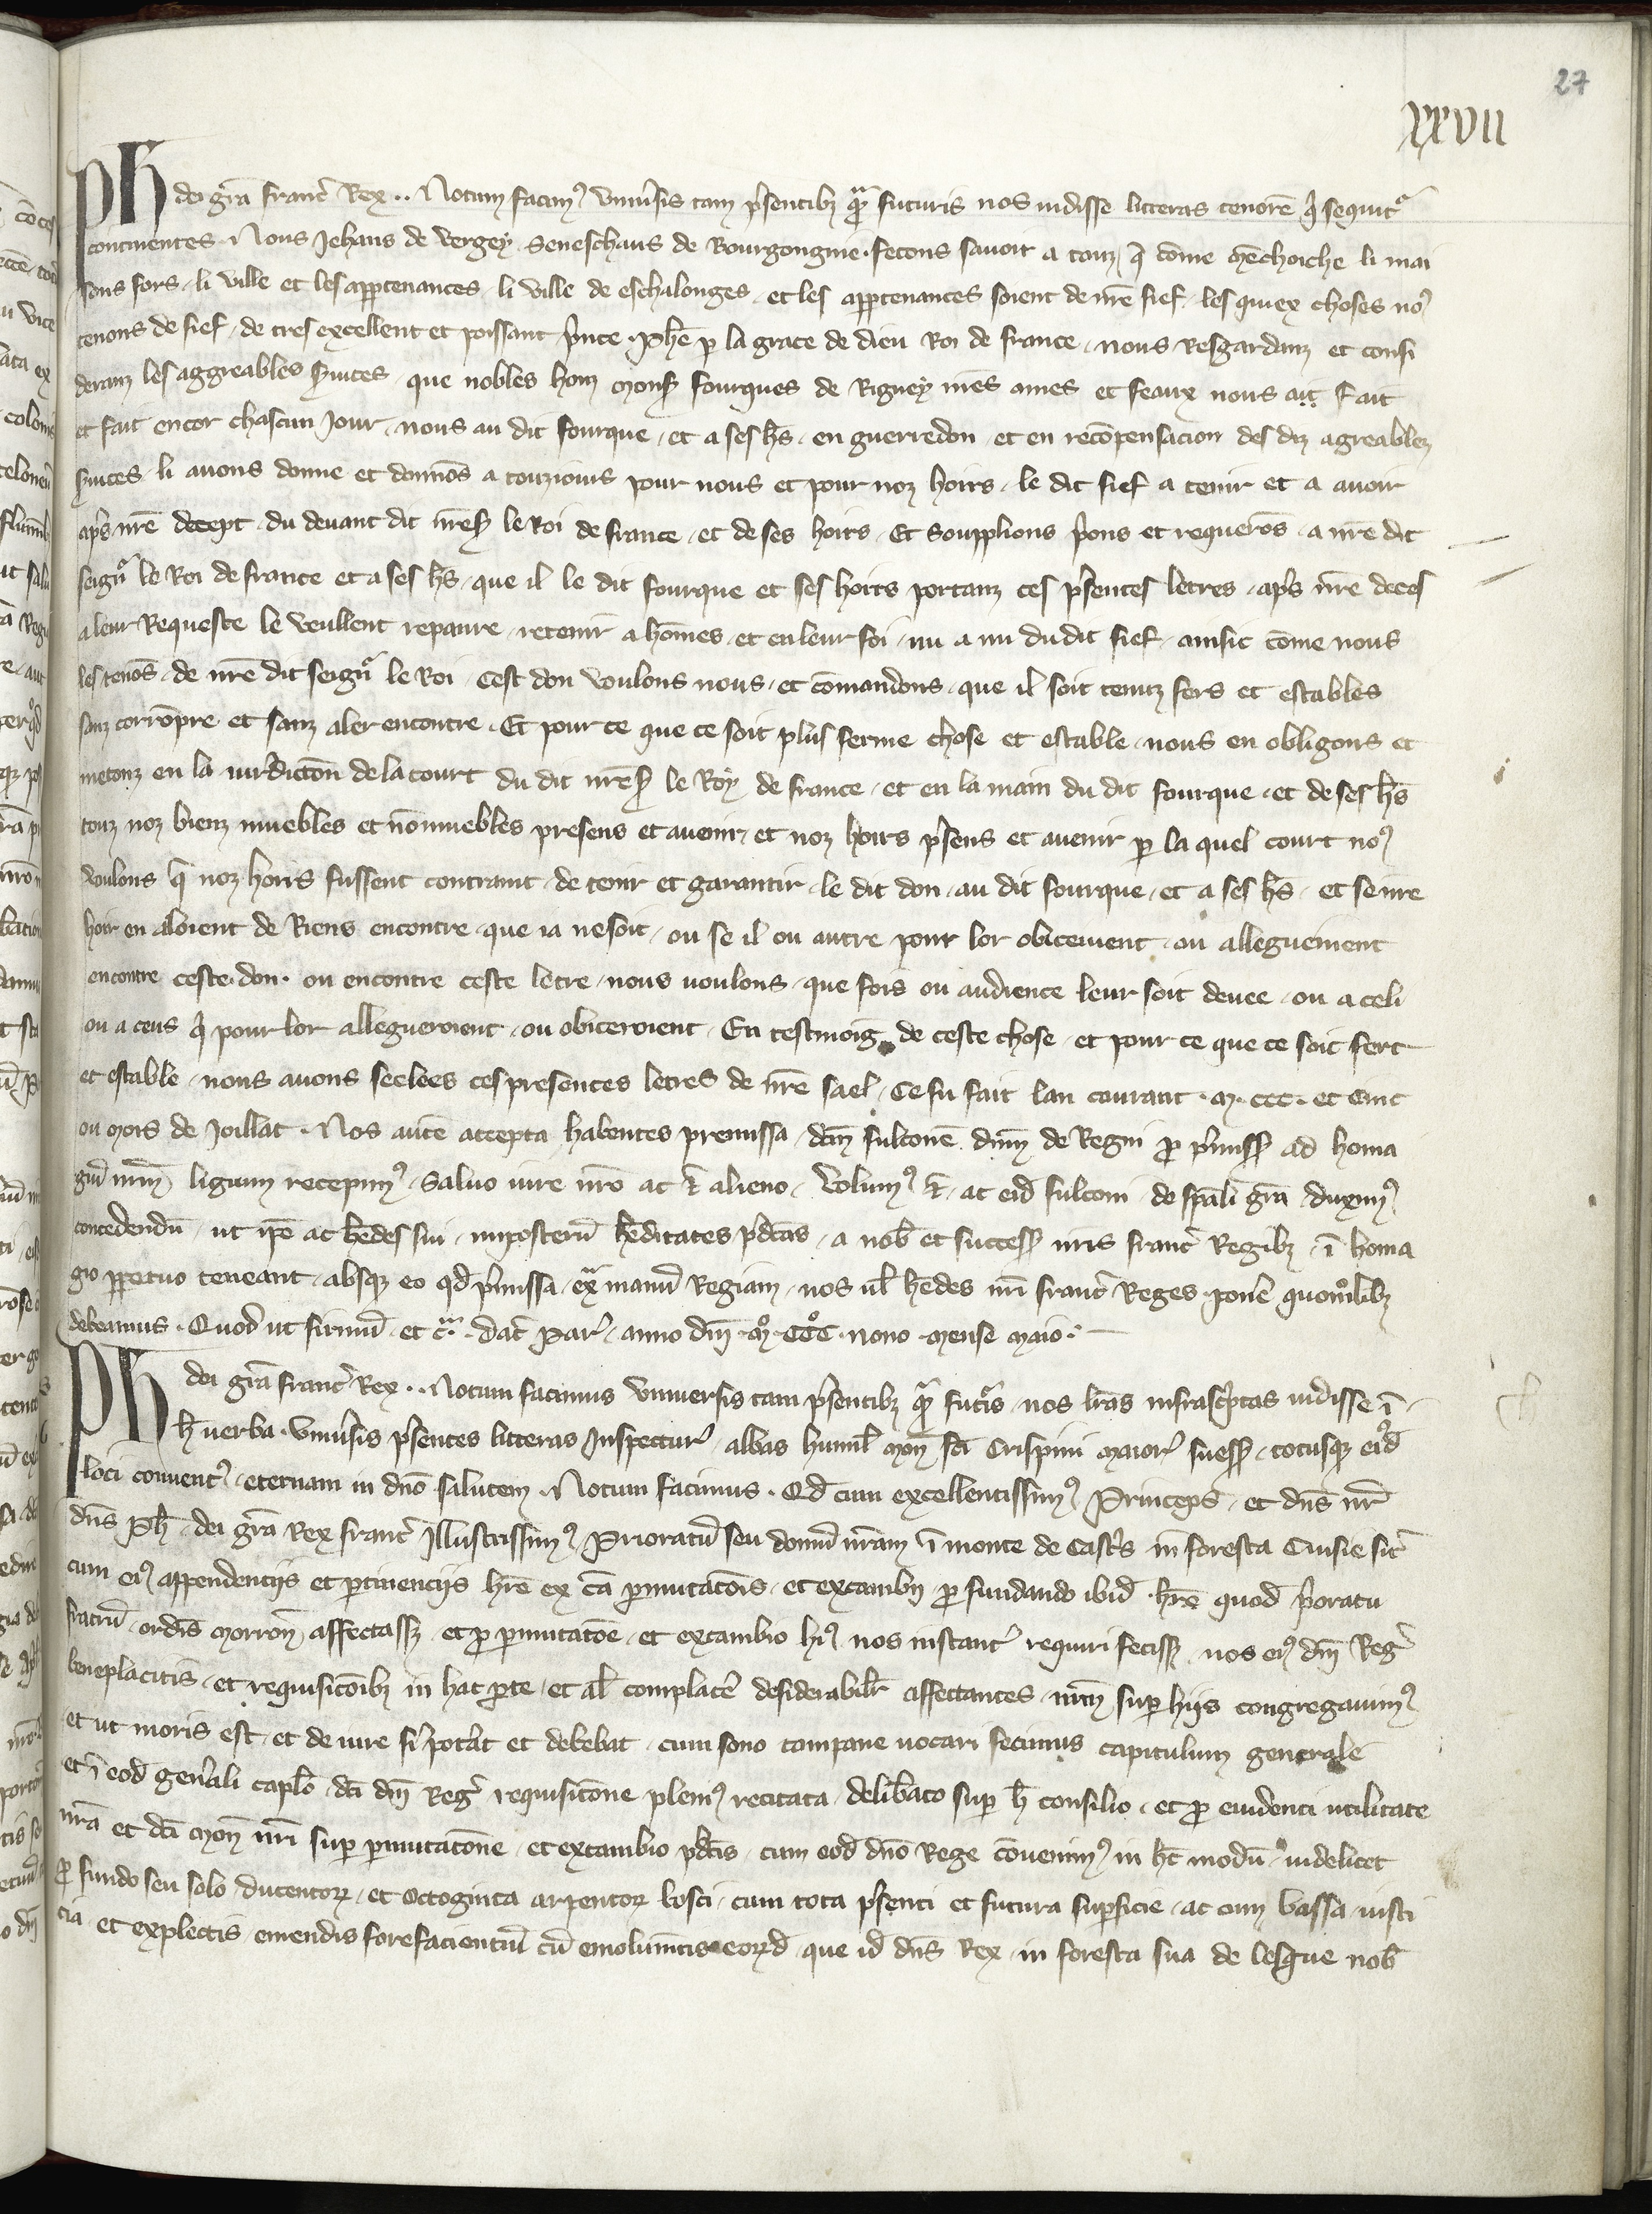 27
XXVII
Ph dei gr̃a Franc̃ Rex .. Notum facim⁹ vniu̾sis tam p̾sentibȝ q̃ᵃm futuris nos uidisse litteras tenorẽ q̾ sequitᷣ
continentes. Nous Jehans de Vergey Seneschaus de Bourgongnie. fecons sauoir a touz q̃ cõme Mẽchoiche li mai
sons fors. li ville et les appartenances. li ville de eschalonges. et les appartenances soient de nr̃e fief. les quiex choses no⁹
tenons de fief. de tres excellent et poissant p̾nce. Ph̃e p̱ la grace de dieu Roi de france. nous Resgardanz et consi
deranz les aggreables s̾uices. que nobles hom monss̾ fourques de Rigney nr̃es ames et feaux nous ait fait
et fait encor chascun jour. nous au dit fourque. et a ses h̃s. en guerredon et en recõpensacion des diz agreablez
s̾uices. li auons donne et donnõs a touziours pour nous et pour noz hoirs. le dit fief a tenir et a auoir
ap̾s nr̃e decept. du deuant dit nr̃es̾ le Roi de france. et de ses hoirs. Et Soupplions p̾ons et requerõs. a nr̃e dit
seign̾ le Roi de france et a ses h̃s. que il le dit fourque et ses hoirs portanz ces p̾sentes letres. ap̾s nr̃e deces
a leur Requeste le veullent repanre. retenir a hõmes. et en leur foi. nu a nu du dit fief. ainsic cõme nous
les tenõs. de nr̃e dit seign̾ le Roi. cest don voulons nous. et cõmandons. que il soit tenuz fers et estables
sanz corrõpre et sanz aler encontre. Et pour ce que ce soit plus ferme chose et estable. nous en obligons et
metonz en la iurdictõn de la court du dit nr̃es̾ le Roy de france. et en la main du dit fourque. et de ses h̃s
touz noz bienz muebles et nõnmuebles presens et auenir, et noz hoirs p̾sens et auenir p̱ la quel court no⁹
voulons q̃ noz hoirs fussent contraint. de tenir et garantir. le dit don. au dit fourque. et a ses h̃s. et se nr̃e
hoir en aloient de Riens encontre. que ia ne soit. ou se il ou autre pour lor obiceiuent. ou allegueiuent
encontre ceste. don. ou encontre ceste letre. nous uoulons. que fors ou audience leur soit deuee. ou a celi
ou a ceus q̾ pour lor allegueroient. ou obiceroient. En tesmoig de ceste chose. et pour ce que ce soit fert
et estable. nous auons seelees ces presentes letres de nr̃e sael. Ce fu fait lan courant. m. ccc. et Cinc
ou mois de Joillat. Nos autẽ accepta habentes premissa. dc̃m fulconẽ. dnm̃ de Regni p̱ p̾miss̾ ad homa
giũ nr̃m ligium recepim⁹. Saluo iure nr̃o ac & alieno. Volum⁹ &. ac eid̃ fulconi de sp̃ali gr̃a duxim⁹
concedendũ. ut ip̃e ac h̾edes sui. imposterũ h̾editates p̾dc̃as. a nob̃ et success̾ nr̃is franc̃ Regibȝ. ĩ homa
gio p̱petuo teneant. absqȝ eo qd̾ p̾missa. exᵃ manũ Regiam. nos ul̃ h̾edes nr̃i franc̃ Reges. pon̾e quom̊libȝ
debeamus. Quod ut firmũ. et cᵃ. dat̃ par̃. anno dñi. m̊. ccc̊. nono. mense maio.
Ph dei gr̃a franc̃ Rex .. Notum facimus Vniuersis tam p̾sentibȝ q̃ᵃm futᵃis. nos lr̃as infrasc̾ptas uidisse ĩ
h̃ uerba. Vniu̾sis p̾sentes litteras Inspectur̃ albas humil̃ mon̾ sc̃i Crispini maior̃ suess̾. totusqȝ eid̾
loci conuent⁹. eternam in dño salutem. Notum facimus. Qd̾ cum excellentissim⁹ Princeps. et dñs nr̃
dñs Ph̃. dei gr̃a Rex franc̃ Illustrissim⁹ Prioratũ seu domũ nr̃am ĩ monte de Castr̾s in foresta Cuisie sit̃
cum ei⁹ appendentijs et p̱tinencijs hr̃e ex cã p̱mutacõis. et excambij p̱ fundando ibid̾. hr̃e quod p̾oratu
fratrũ. ordĩs morron̾ affectass̾. et p̱ p̱mutacõe. et excambio hi⁹ nos instant̾ requiri feciss̾. nos ei⁹ dñi Reg̾
beneplacitis. et requisicõibȝ in hac p̱te. et al̃ complac̾e desiderabilr̃ affectantes. nr̃m sup̱ hijs congregauim⁹
et ut moris est. et de iure fi̾ pot̾at et debebat. cum sono campane uocari fecimus capitulum generale
et ĩ eod̾ gen̾ali caplo. dc̃i dñi Reg̾ requisicõne pleni⁹ recitata. delib̾ato sup̱ h̃ consilio. et p̱ euidenti utilitate
nr̃a et dc̃i mon̾ nr̃i sup̱ p̱mutacõne. et excambio p̾dc̃is. cum eod̾ dño Rege cõuenim⁹ in h̃c modũ. uidelicet
p̱ fundo seu solo. ducentoꝝ. et octoginta arpentoꝝ bosci. cum tota p̾senti et futura sup̱ficie. ac cum bassa iusti
cia et explectis. emendis forefacientiũ cũ emolum̃tis eoꝝd̾. que id̾ dñs Rex. in foresta sua de lesgue nob̃